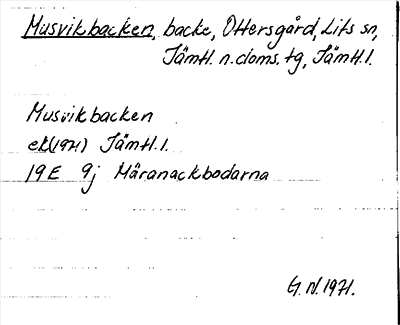 Musvikbacken, backe, Ottersgård, Lits sn,
Jämtl. n. doms. tg, Jämtl. l.
Musvikbacken
ek (1971) Jämtl. l.
19 E 9j Märanackbodarna
G. N. 1971.